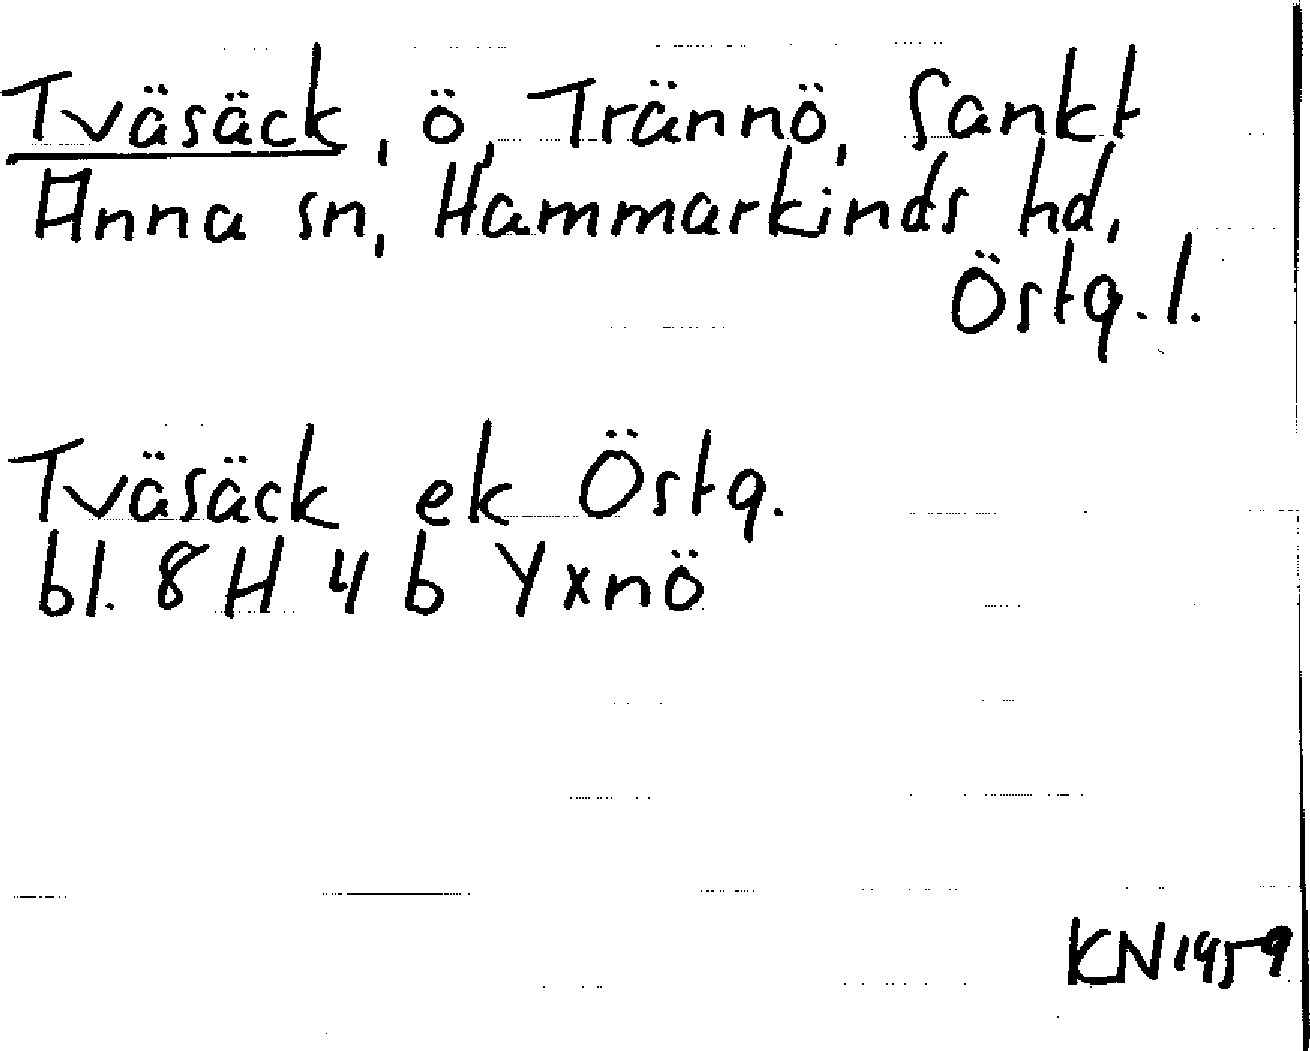 Tväsäck, ö, Trännö, Sankt
Anna sn, Hammarkinds hd,
Östg. l.
Tväsäck ek Östg.
bl. 8 H 4 b Yxnö
KN 1959